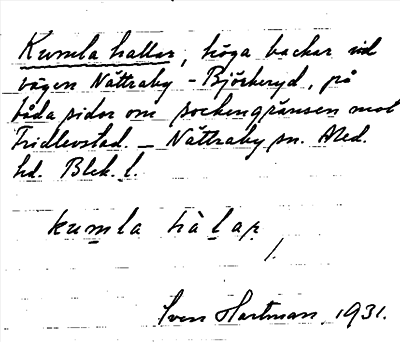 Kumla hallar, höga backar vid
vägen Nättraby - Björkeryd, på
båda sidor om sockengränsen mot
Fridlevstad. — Nättraby sn. Med.
hd. Blek. l.
kumla hàlar
Sven Hartman, 1931.